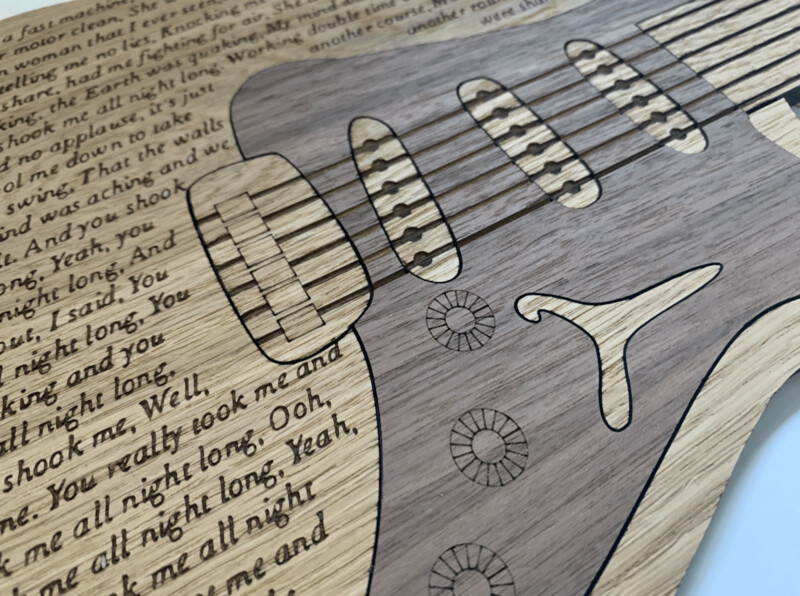 a fast machine
motor clean. She
woman that I ever seen.
telling me no lies. Knocking me
share, had me fighting for air. She
king, the Earth was quaking. My mind
another course. M
were shar
shook me all night long. Working double time
another roun
d no applause, it's just
ol me down to take
swing. That the walls
ind was aching and we
it. And you shook
ong, Yeah, you
night long, And
out, I said, You
l night long, You
king and you
all night long,
shook me, Well,
me. You really took me and
k me all night long, Ooh,
me all night long, Yeah,
ok me all night
me and